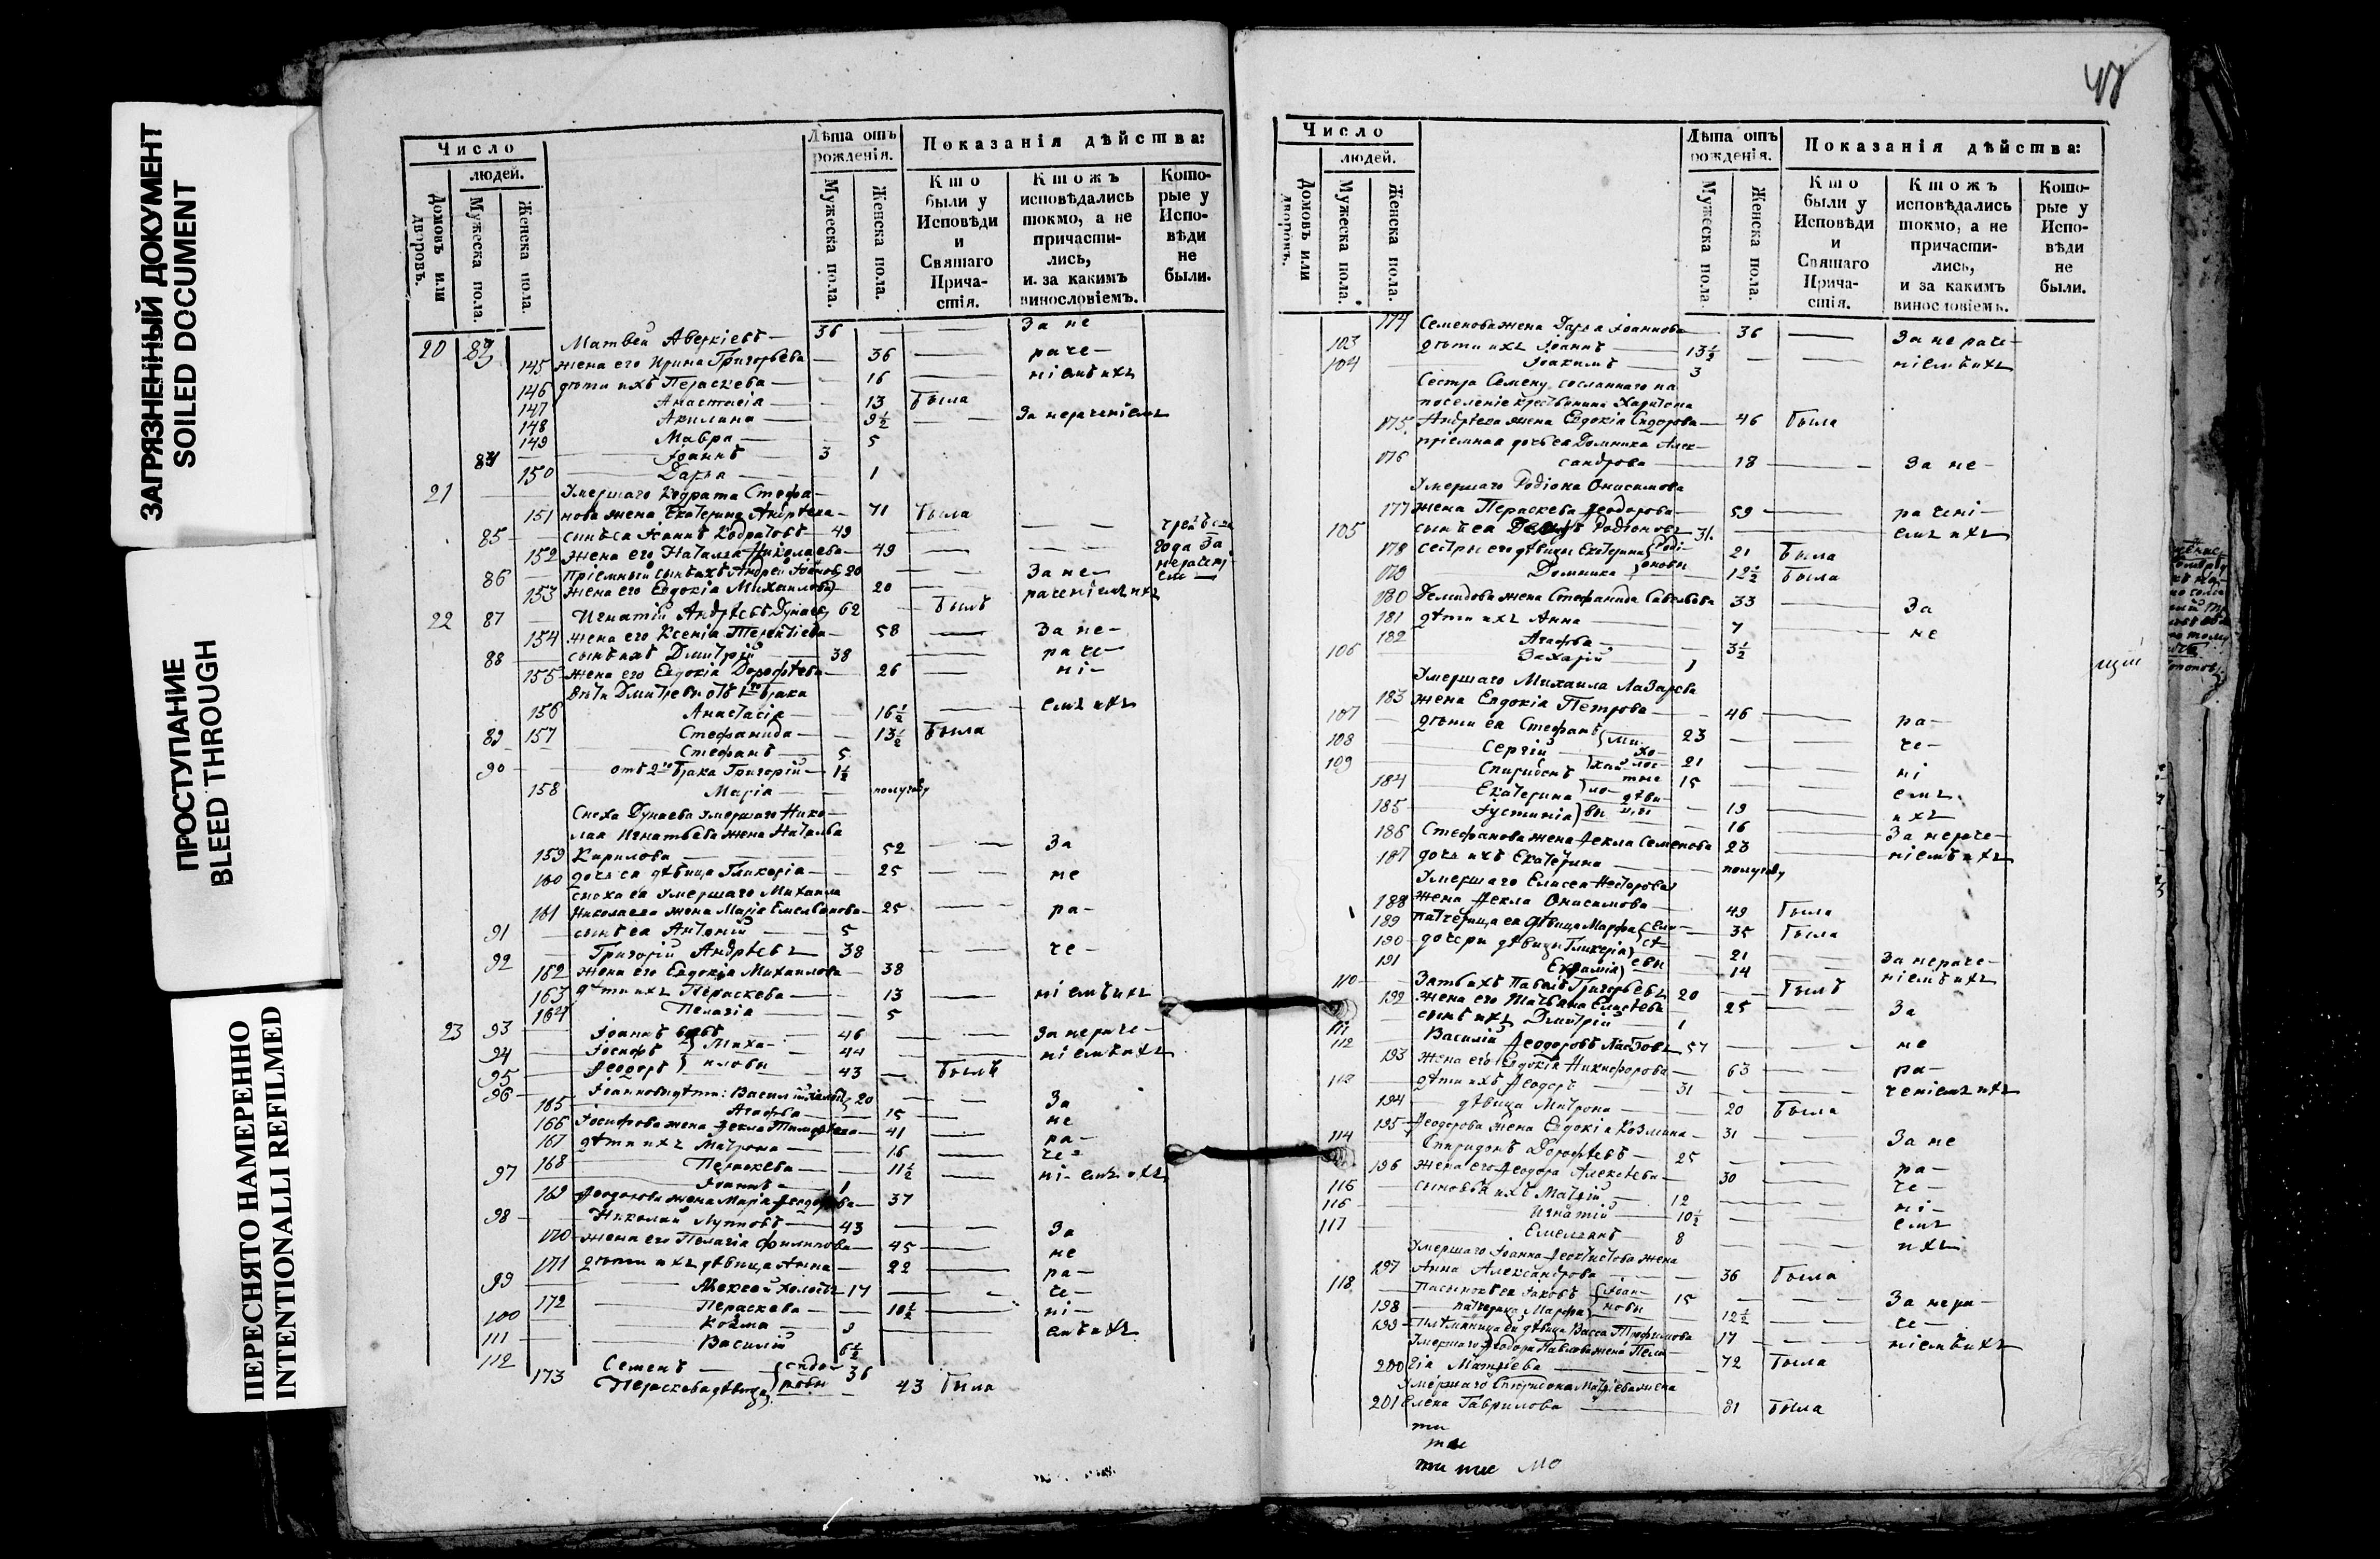 ЗАГРЯЗНЕННЫЙ ДОКУМЕНТ
SOILED DOCUMENT
ПРОСТУПАНИЕ
BLEED THROUGH
ПЕРЕСНЯТО НАМЕРЕННО
INTENTIONALLI REFILMED
Число
людей.
Домовъ или дворовъ.
Мужеска пола.
Женска пола.
Лѣта отъ рожденія.
Мужеска пола.
Женска пола.
Показанія дѣйства:
Кто были у Исповѣди и Святаго Причастія.
Ктожъ исповѣдались токмо, а не причастились, и за какимъ винословіемъ.
Которые у Исповѣди не были.
20 83 Матвей Аверкіевъ 36 За не
145 жена его Ирина Григорьева 36 раче-
146 дѣти ихъ Пераскева 16 ніемъ ихъ
147 Анастасія 13 была
148 Акилина 9½ За нераченіемъ
149 Мавра 5
84 Іоаннъ 3
150 Дарья 1
21 Умершаго Кодрата Стефа-
151 нова жена Екатерина Андрѣева 71 была
85 сынъ ея Іоаннъ Кодратовъ 49
152 жена его Наталья Николаева 49 года За
86 Пріемный сынъ ихъ Андрей Іоановъ 20 За не-
153 Жена его Евдокія Михаилова 20 раченіемъ ихъ
22 87 Игнатій Андрѣевъ Дунаевъ 62 былъ
154 жена его Ксенія Терентіева 58 За не-
88 сынъ ихъ Дмитрій 38 раче-
155 жена его Евдокія Дорофѣева 26 ні-
Дѣти Дмитревы отъ 1го брака
156 Анастасія 16½ емъ ихъ
157 Стефанида 13½ была
89 Стефанъ 5
90 отъ 2го брака Григорій 1½
158 Марія полугоду
Сноха Дунаева умершаго Нико-
лая Игнатьева жена Наталья
159 Кирилова 52 За
160 дочь ея дѣвица Гликерія 25 не
сноха ея умершаго Михаила
161 Николаева жена Марія Емельянова 25 ра-
91 сынъ ея Антоній 5
92 Григорій Андрѣевъ 38 че-
162 жена его Евдокія Михаилова 38
163 дѣти ихъ Пераскева 13 ніемъ ихъ
164 Пелагія 5
23 93 Іоаннъ 46 За нераче-
94 Іосифъ Миха- 44 ніемъ ихъ
95 Ѳеодоръ иловы 43 былъ
96 Іоанновы дѣти: Василій 20 За
165 Агафья 15 не
166 Іосифова жена Ѳекла Тимофѣева 41 ра-
167 дѣти ихъ Матрона 16 че-
168 Пераскева 11½ ні-емъ ихъ
97 Іоаннъ 1
169 Ѳеодорова жена Марія Ѳеодорова 37
98 Николай Лупповъ 43 За
170 жена его Пелагія Филипова 45 не
171 дѣти ихъ дѣвица Анна 22 ра-
99 Алексей холостъ 17 че-
172 Пераскева 10½ ні-
100 Козма 9 емъ ихъ
111 Василій 6½
112 Семенъ Сидо- 36
173 Пераскева дѣвица ровы 43 была
Число
людей.
Домовъ или дворовъ.
Мужеска пола.
Женска пола.
Лѣта отъ рожденія.
Мужеска пола.
Женска пола.
Показанія дѣйства:
Кто были у Исповѣди и Святаго Причастія.
Ктожъ исповѣдались токмо, а не причастились, и за какимъ винословіемъ.
Которые у Исповѣди не были.
174 Семенова жена Дарья Іоаннова 36 За нераче-
103 дѣти ихъ Іоаннъ 13½
104 Іоакимъ 3 ніемъ ихъ
Сестра Семену сосланнаго на
поселеніе крестьянина Харитона
175 Андрѣева жена Евдокія Сидорова 46 была
пріемная дочь ея Домника Алек-
176 сандрова 18 За не-
Умершаго Родіона Онисимова
177 жена Пераскева Ѳеодорова 59 рачені-
105 сынъ ея Родіоновъ 31 емъ ихъ
178 сестры его дѣвицы Екатерина Роді- 21 была
179 Домника оновы 12½ была
180 Демидова жена Стефанида Савельева 33 За
181 дѣти ихъ Анна 7 не
182 Агафья 3½
106 Захарій 1
Умершаго Михаила Лазарева
183 жена Евдокія Петрова 46 ра-
107 дѣти ея Стефанъ Ми- 23 че-
108 Сергій хай хо- 21 ні
109 Спиридонъ лос- тые 15 емъ
184 Екатерина ло- дѣви- 19 ихъ
185 Іустинія вы цы 16
186 Стефанова жена Ѳекла Семенова 23 За нераче-
187 дочь ихъ Екатерина полугоду ніемъ ихъ
Умершаго Елисея Несторова
188 жена Ѳекла Онисимова 49 была
189 патчерица ея дѣвица Марфа Ели- 35 была
190 дочери дѣвицы Гликерія сѣ- 21 За нераче-
191 евы 14 ніемъ ихъ
110 Зять ихъ Павелъ Григорьевъ 20 былъ
192 жена его Татьяна Елисѣева 25 За
111 сынъ ихъ Дмитрій 1
112 Василій Ѳеодоровъ 57 не
193 жена его Евдокія Никифорова 63 ра-
113 дѣти ихъ Ѳеодоръ 31 ченіемъ ихъ
194 дѣвица Матрона 20 была
195 Ѳеодорова жена Евдокія Козмина 31
114 Спиридонъ Дорофѣевъ 25 За не
196 жена его Ѳеодора Алексѣева 30 ра-
115 сыновья ихъ Матвій 12 че-
116 Игнатій 10½ ні-
117 Емельянъ 8 емъ ихъ
Умершаго Іоанна Ѳеоктистова жена
197 Анна Александрова 36 была
118 Пасынокъ ея Іаковъ Іоан- 15 За нера-
198 патчерица Марфа новы 12½ че-
199 Племянница ей дѣвица Васса Трофимова 17 ніемъ ихъ
Умершаго Ѳеодора Павлова жена Пела-
200 гія Матвѣева 72 была
Умершаго Спиридона Матвѣева жена
201 Елена Гаврилова 81 была